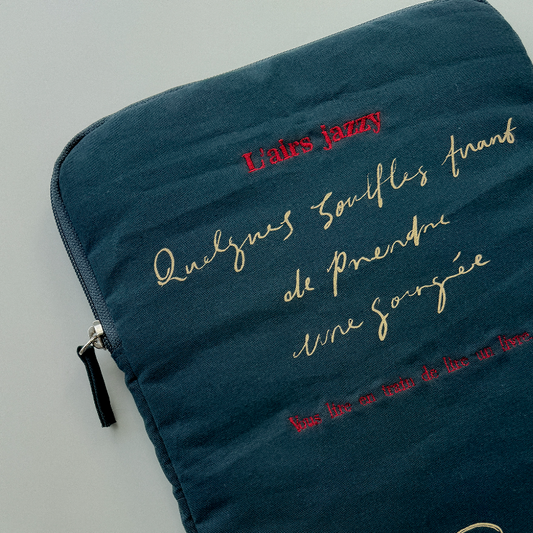 L'airs jazzy
Quelques Soulfles avant
de prendre
une gorgée
Vous lire en train de lire un livre